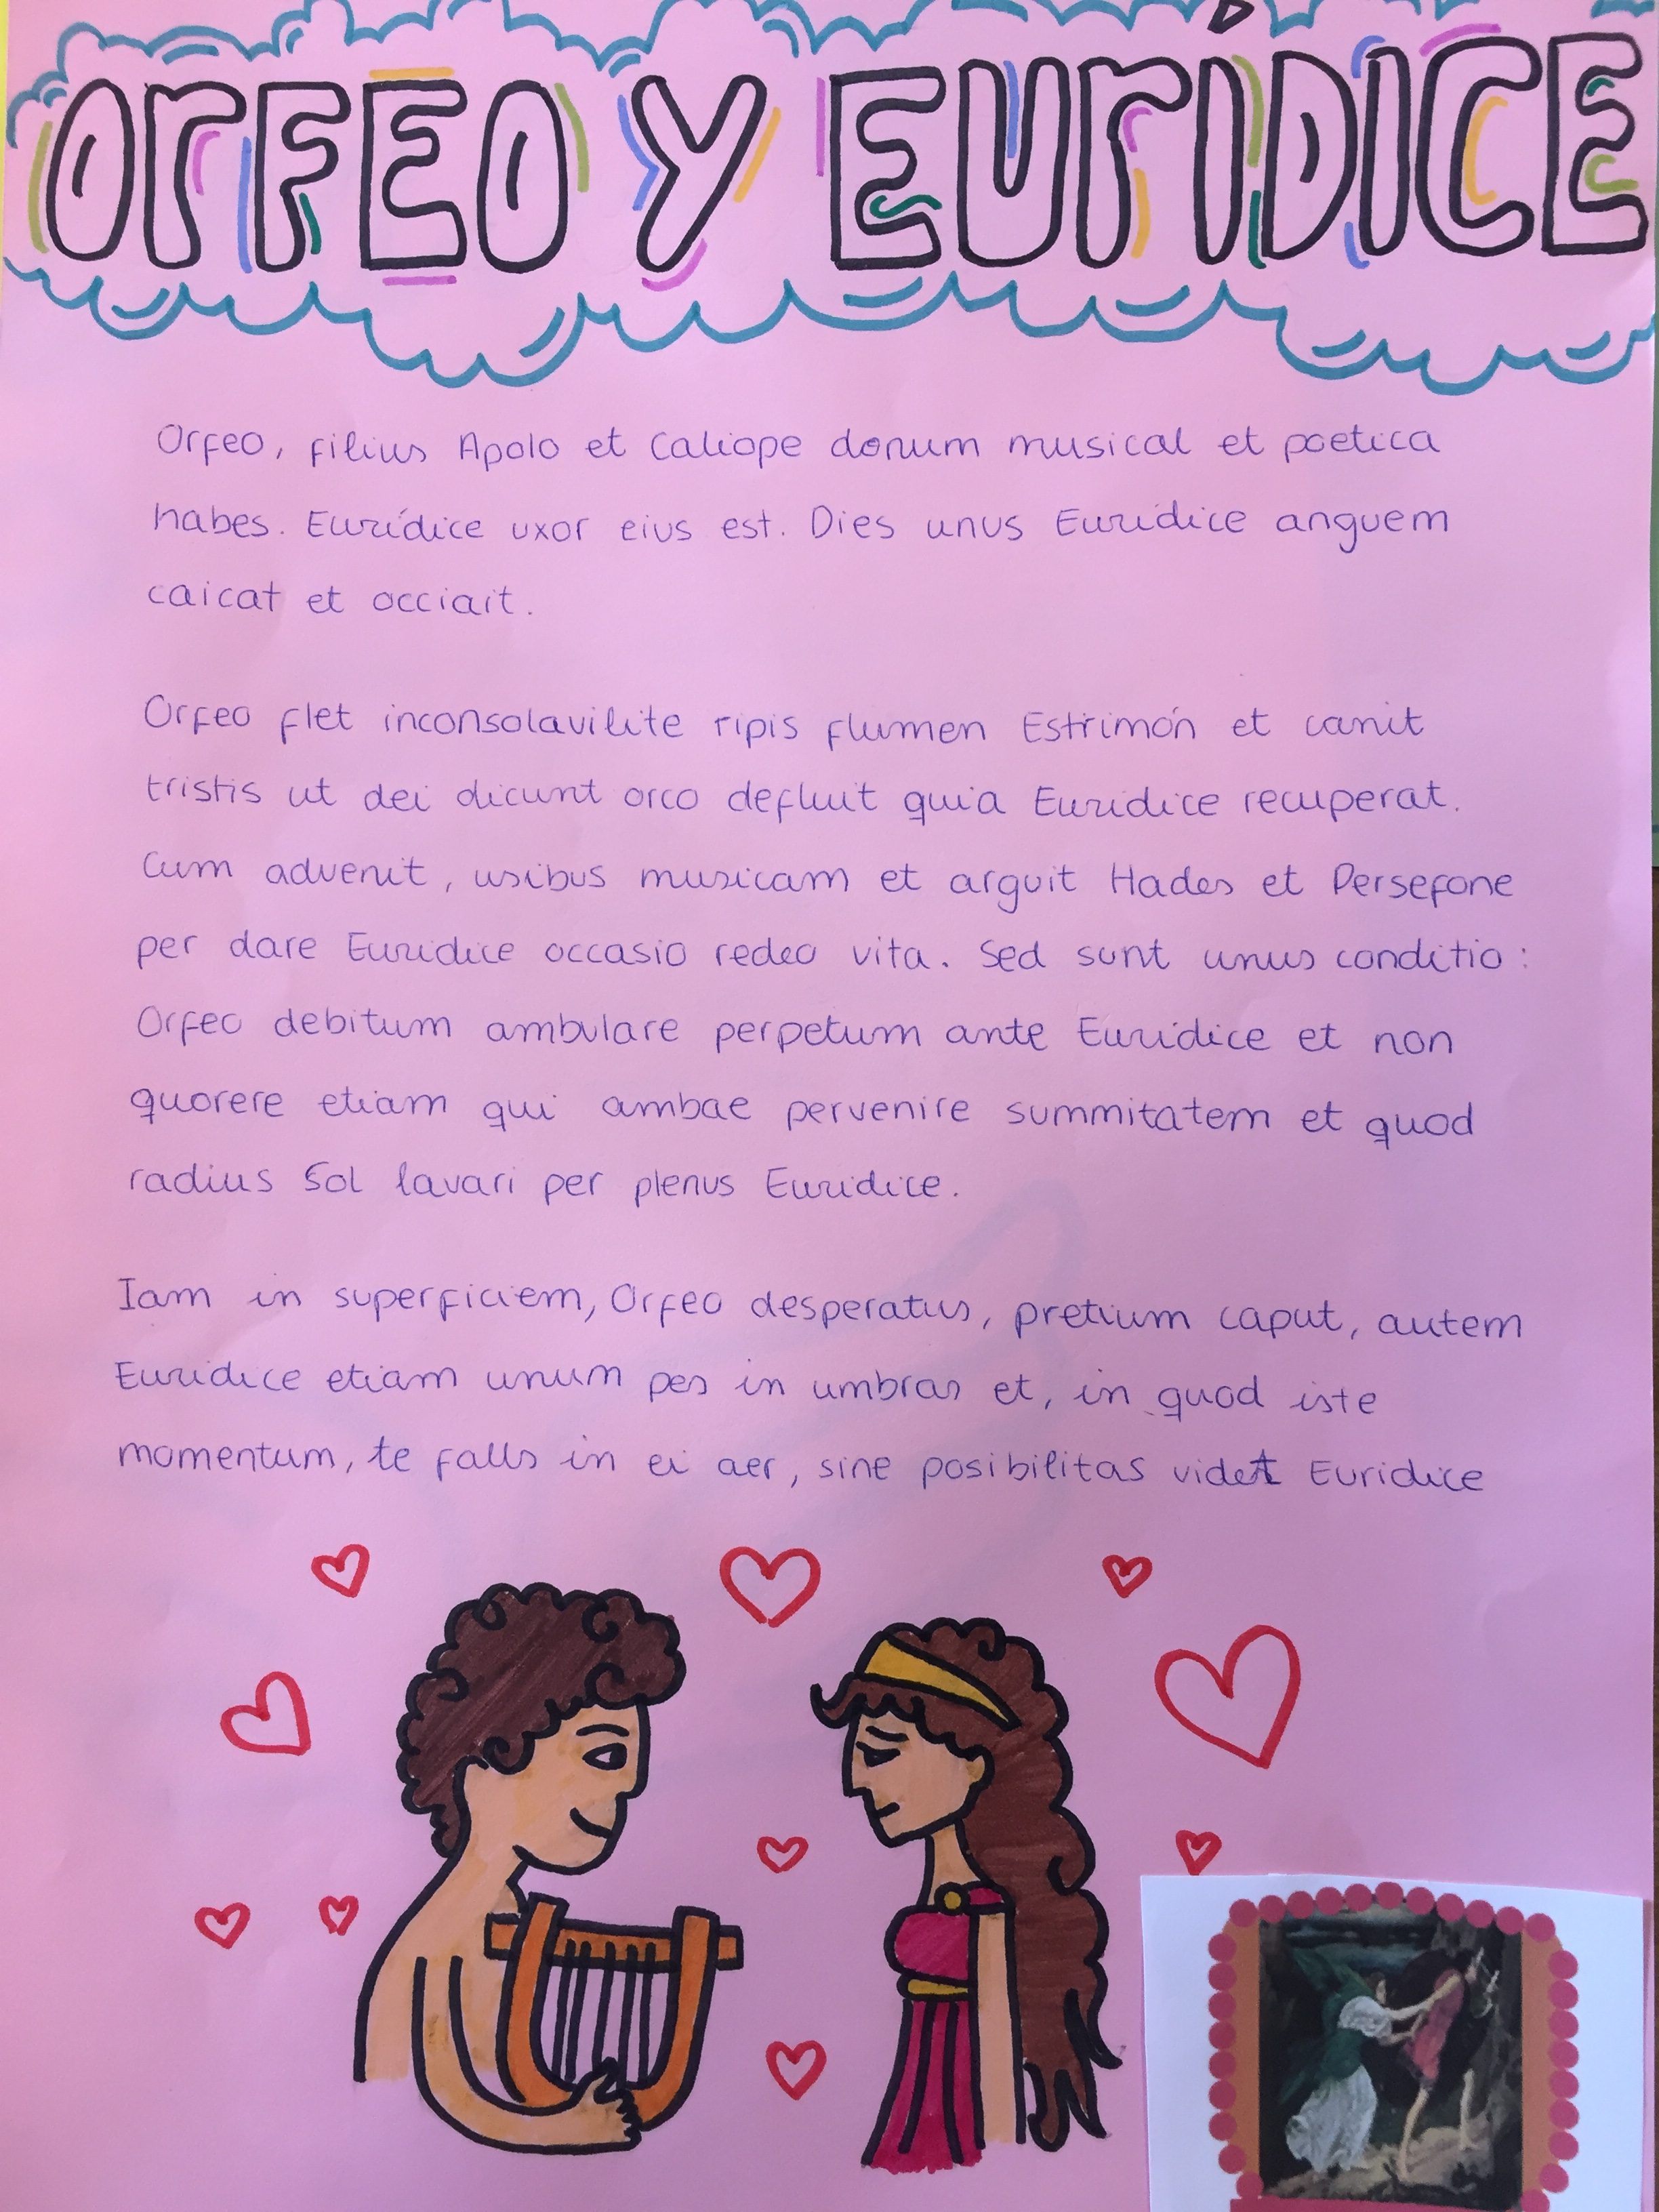 ORFEO Y EURÍDICE
Orfeo, filius Apolo et Caliope donum musical et poetica
habes. Eurídice uxor eius est. Dies unus Eurídice anguem
caicat et occiait.
Orfeo flet inconsolavilite ripis flumen Estrimón et canit
tristis ut dei dicunt orco defluit quia Eurídice recuperat.
Cum advenit, usibus musicam et arguit Hades et Persefone
per dare Eurídice occasio redeo vita. Sed sunt unus conditio:
Orfeo debitum ambulare perpetum ante Eurídice et non
quorere etiam qui ambae pervenire summitatem et quod
radius Sol lavari per plenus Eurídice.
Iam in superficiem, Orfeo desperatus, pretium caput, autem
Eurídice etiam unum pes in umbras et, in quod iste
momentum, te falls in ei aer, sine posibilitas videt Euridice